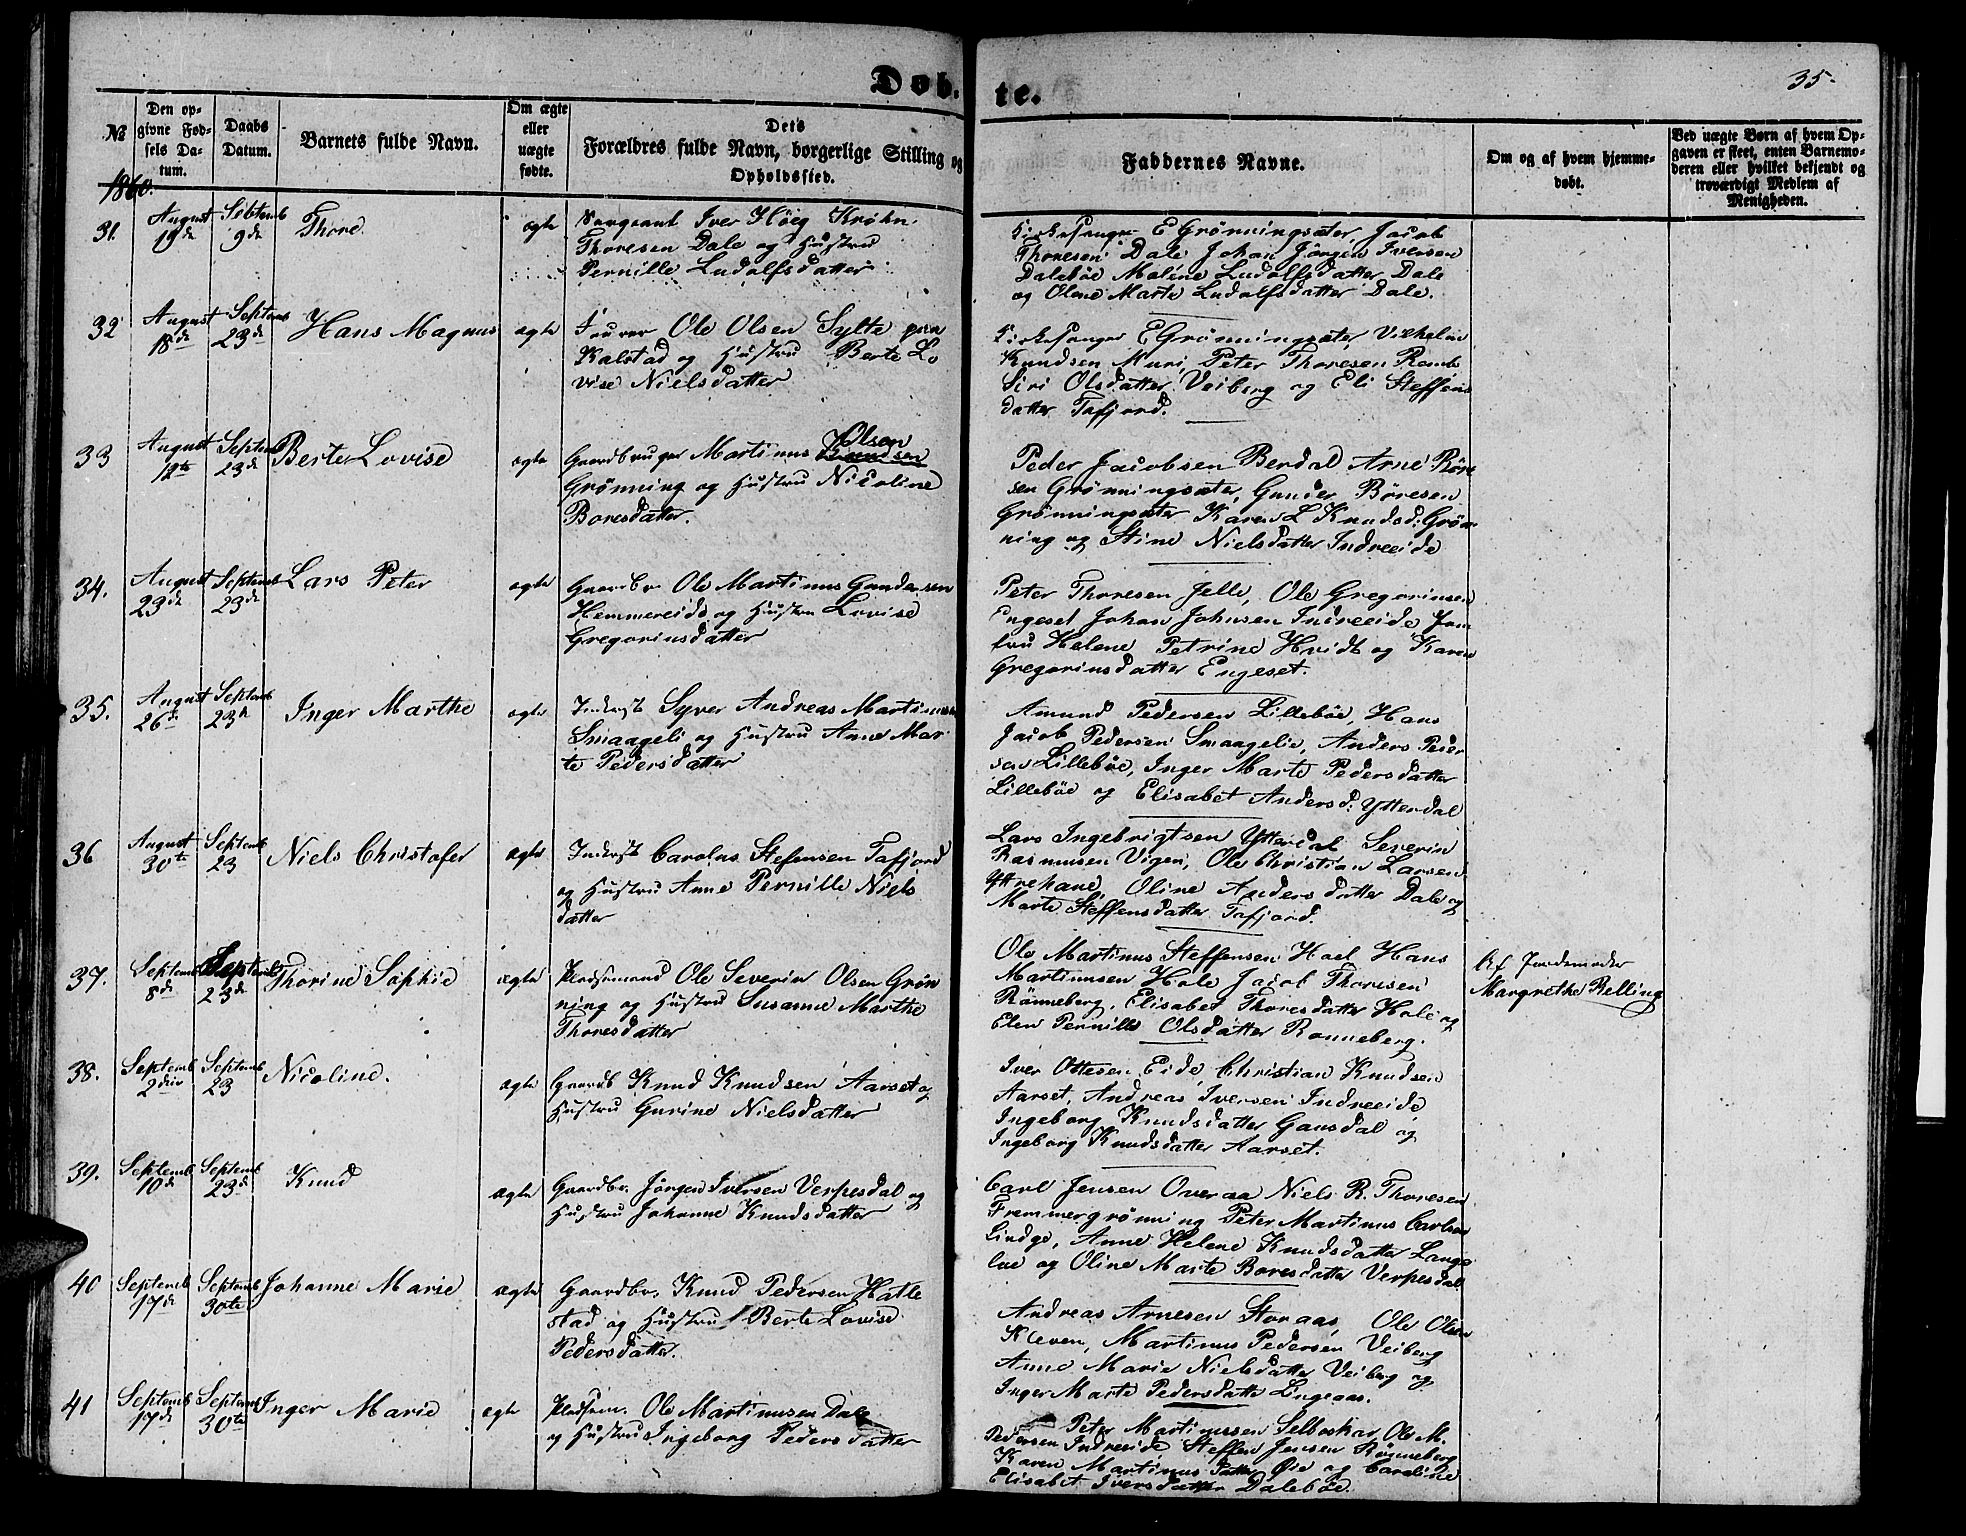 Døb-
te.
35.
№
Den op-
givne Fød-
sels Da-
tum.
Daabs
Datum.
Barnets fulde Navn.
Om ægte
eller
uægte
fødte.
Dets
Forældres fulde Navn, borgerlige Stilling og
Opholdssted.
Faddernes Navne.
Om og af hvem hjemme-
døbt.
Ved uægte Børn af hvem Op-
gaven er skeet, enten Barnemo-
deren eller hvilket bekjendt og
troværdigt Medlem af
Menigheden.
1860.
31.
August
19de
Septemb
9de
Thore.
ægte
Sergeant Iver Høeg Krohn
Thoresen Dale og Hustru
Pernille Ludolfsdatter
Kirkesanger E Grönningsæter Jacob
Thoresen Dale Johan Jörgen Iversen
Dalebøe Maline Ludolfsdatter Dale
og Oline Marte Ludolfsdatter Dale.
32
August
18de
Septemb
23de
Hans Magnus
ægte
Fourer Ole Olsen Sylte paa
Kalstad og Hustru Berte Lo
vise Nielsdatter
Kirkesanger E Grönningsæter Vilhelm
Knudsen Muri, Peter Thoresen
Siri Olsdatter Veiberg og Eli Steffens
datter Tafjord.
33
August
12te
Septem
23de
Berte Lovise
ægte
Gaardbruger Martinus Olsen
Grönning og Hustru Nicoline
Boresdatter.
Peder Jacobsen Berdal Arne Böre
sen Grönningsæter, Gunder Böresen
Grönningsæter Karen L Knudsd: Grön
ning og Stine Nielsdatter Indreeide
34.
August
23de
Septemb
23de
Lars Peter
ægte
Gaardbr Ole Martinus Gundersen
Hemmereide og Hustru Lovise
Gregoriusdatter
Peter Thoresen Jelle, Ole Gregoriusen
Engeset Johan Johnsen Indreeide Jom
fru Helene Petrine Hvidt og Karen
Gregoriusdatter Engeset.
35.
August
26de
Septemb
23de
Inger Marthe
ægte
Inderst Syver Andreas Martinusen
Smaageli og Hustru Anne Mar
te Pedersdatter
Amund Pedersen Lillebøe, Hans
Jacob Pedersen Smaagelie, Anders Peder
sen Lillebøe, Inger Marte Pedersdatter
Lillebøe og Elisabet Andersd: Ytterdal
36
August
30te
Septemb
23
Niels Christofer
ægte
Inderst Carolus Stefensen Tafjord
og Hustru Anne Pernille Niels
datter
Lars Ingebrigtsen Ytterdal Severin
Rasmusen Vigen, Ole Christian Larsen
Yttrehane, Oline Andersdatter Dale og
Marte Steffensdatter Tafjord.
37.
Septemb
8de
Septemb
23de
Thorine Sophie
ægte
Pladsmand Ole Severin Olsen Grön
ning og Hustru Susanne Marthe
Thoresdatter
Ole Martinus Steffensen Hoel Hans
Martinusen Hole Jacob Thoresen
Rönneberg, Elisabet Thoresdatter Hole og
Elen Pernille Olsdatter Ronneberg.
Af Jordemoder
Margrethe Relling
38.
Septemb
2den
Septemb
23
Nicoline.
ægte
Gaardb Knud Knudsen Aarset og
Hustru Gurine Nielsdatter
Iver Ottesen Eide, Christian Knudsen
Aarset, Andreas Iversen Indreeide
Ingeborg Knudsdatter Gausdal og
Ingeborg Knudsdatter Aarset.
39.
Septemb
10de
Septemb
23de
Knud
ægte
Gaardbr. Jörgen Iversen Verpesdal og
Hustru Johanne Knudsdatter
Carl Jensen Overaa Niels R. Thoresen
Fremmergrönning Peter Martinus Carlsen
Lindge, Anne Helene Knudsdatter Lange
løe og Oline Marte Boresdatter Verpesdal
40
Septemb
17de
Septemb
30te
Johanne Marie
ægte
Gaardbr. Knud Pedersen Hatle
stad og Hustru Berte Lovise
Pedersdatter.
Andreas Arnesen Storaas, Ole Olsen
Kleven, Martinus Pedersen Veiberg
Anne Marie Nielsdatter Veiberg og
Inger Marte Pedersdatte Lingeaas.
41
Septemb
17de
Septemb
30te
Inger Marie
ægte
Pladsm. Ole Martinusen Dale
og Hustru Ingeborg Pedersdatter
Peter Martinussen Selboskar, Ole M.
Pedersen Indreeide Steffen Jensen Rönneberg
Karen Martinusdatter Øie og Caroline
Elisabet Iversdatter Dalebøe.